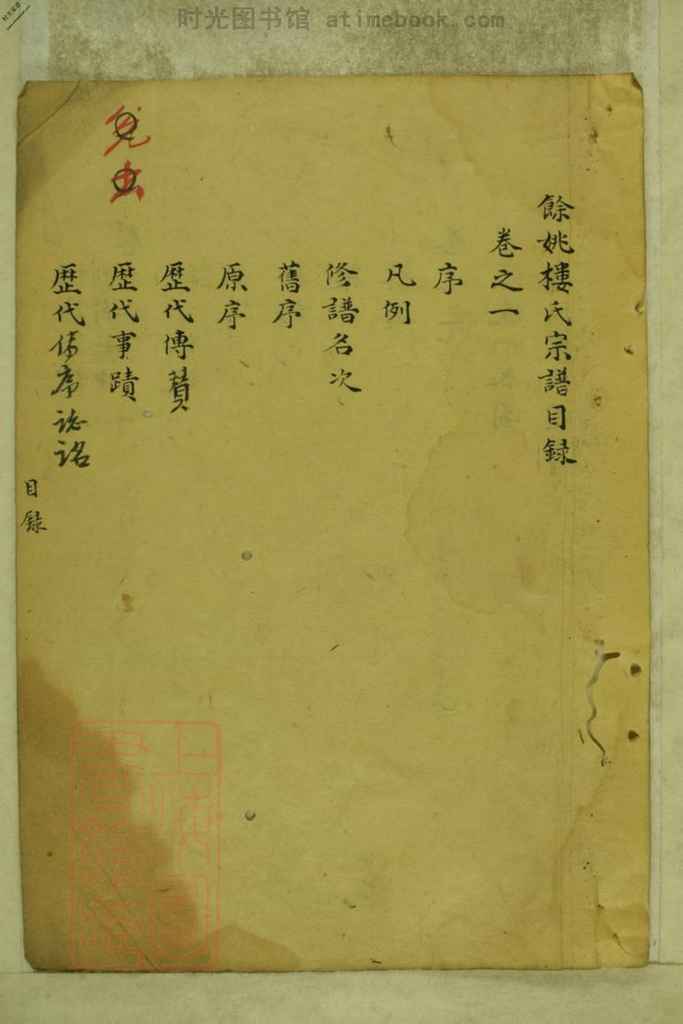 时光图书馆 atimebook.com
餘姚樓氏宗譜目録
卷之一
序
凡例
修譜名次
舊序
原序
歷代傳贊
歷代事蹟
歷代傳序誌銘
目録